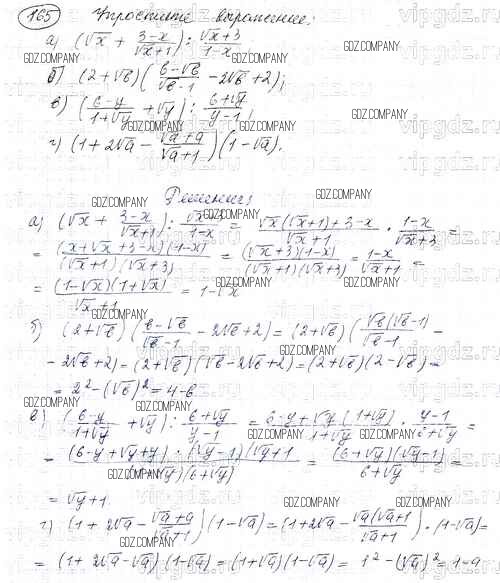 165 Упростите выражение:
а) (√x + (3-x)/(√x+1)) : (√x+3)/(1-x)
б) (2+√в)((в-√в)/(√в-1) - 2√в + 2);
в) ((6-y)/(1+√y) + √y) : (6+√y)/(y-1);
г) (1+2√a - (√a+a)/(√a+1))(1-√a).
Решение:
а) (√x + (3-x)/(√x+1)) : (√x+3)/(1-x) = (√x(√x+1)+3-x)/(√x+1) · (1-x)/(√x+3) =
= ((x+√x+3-x)(1-x))/((√x+1)(√x+3)) = ((√x+3)(1-x))/((√x+1)(√x+3)) = (1-x)/(√x+1) =
= ((1-√x)(1+√x))/(√x+1) = 1-√x
б) (2+√в)((в-√в)/(√в-1) - 2√в+2) = (2+√в)((√в(√в-1))/(√в-1) -
- 2√в+2) = (2+√в)(√в-2√в+2) = (2+√в)(2-√в) =
= 2²-(√в)² = 4-в
в) ((6-y)/(1+√y) + √y) : (6+√y)/(y-1) = (6-y+√y(1+√y))/(1+√y) · (y-1)/(6+√y) =
= ((6-y+√y+y)·(√y-1)(√y+1))/((1+√y)(6+√y)) = ((6+√y)(√y-1))/(6+√y) =
= √y+1
г) (1+2√a - (√a+a)/(√a+1))(1-√a) = (1+2√a - (√a(√a+1))/(√a+1))·(1-√a) =
= (1+2√a-√a)(1-√a) = (1+√a)(1-√a) = 1²-(√a)² = 1-a
GDZ.COMPANY
vipgdz.ru